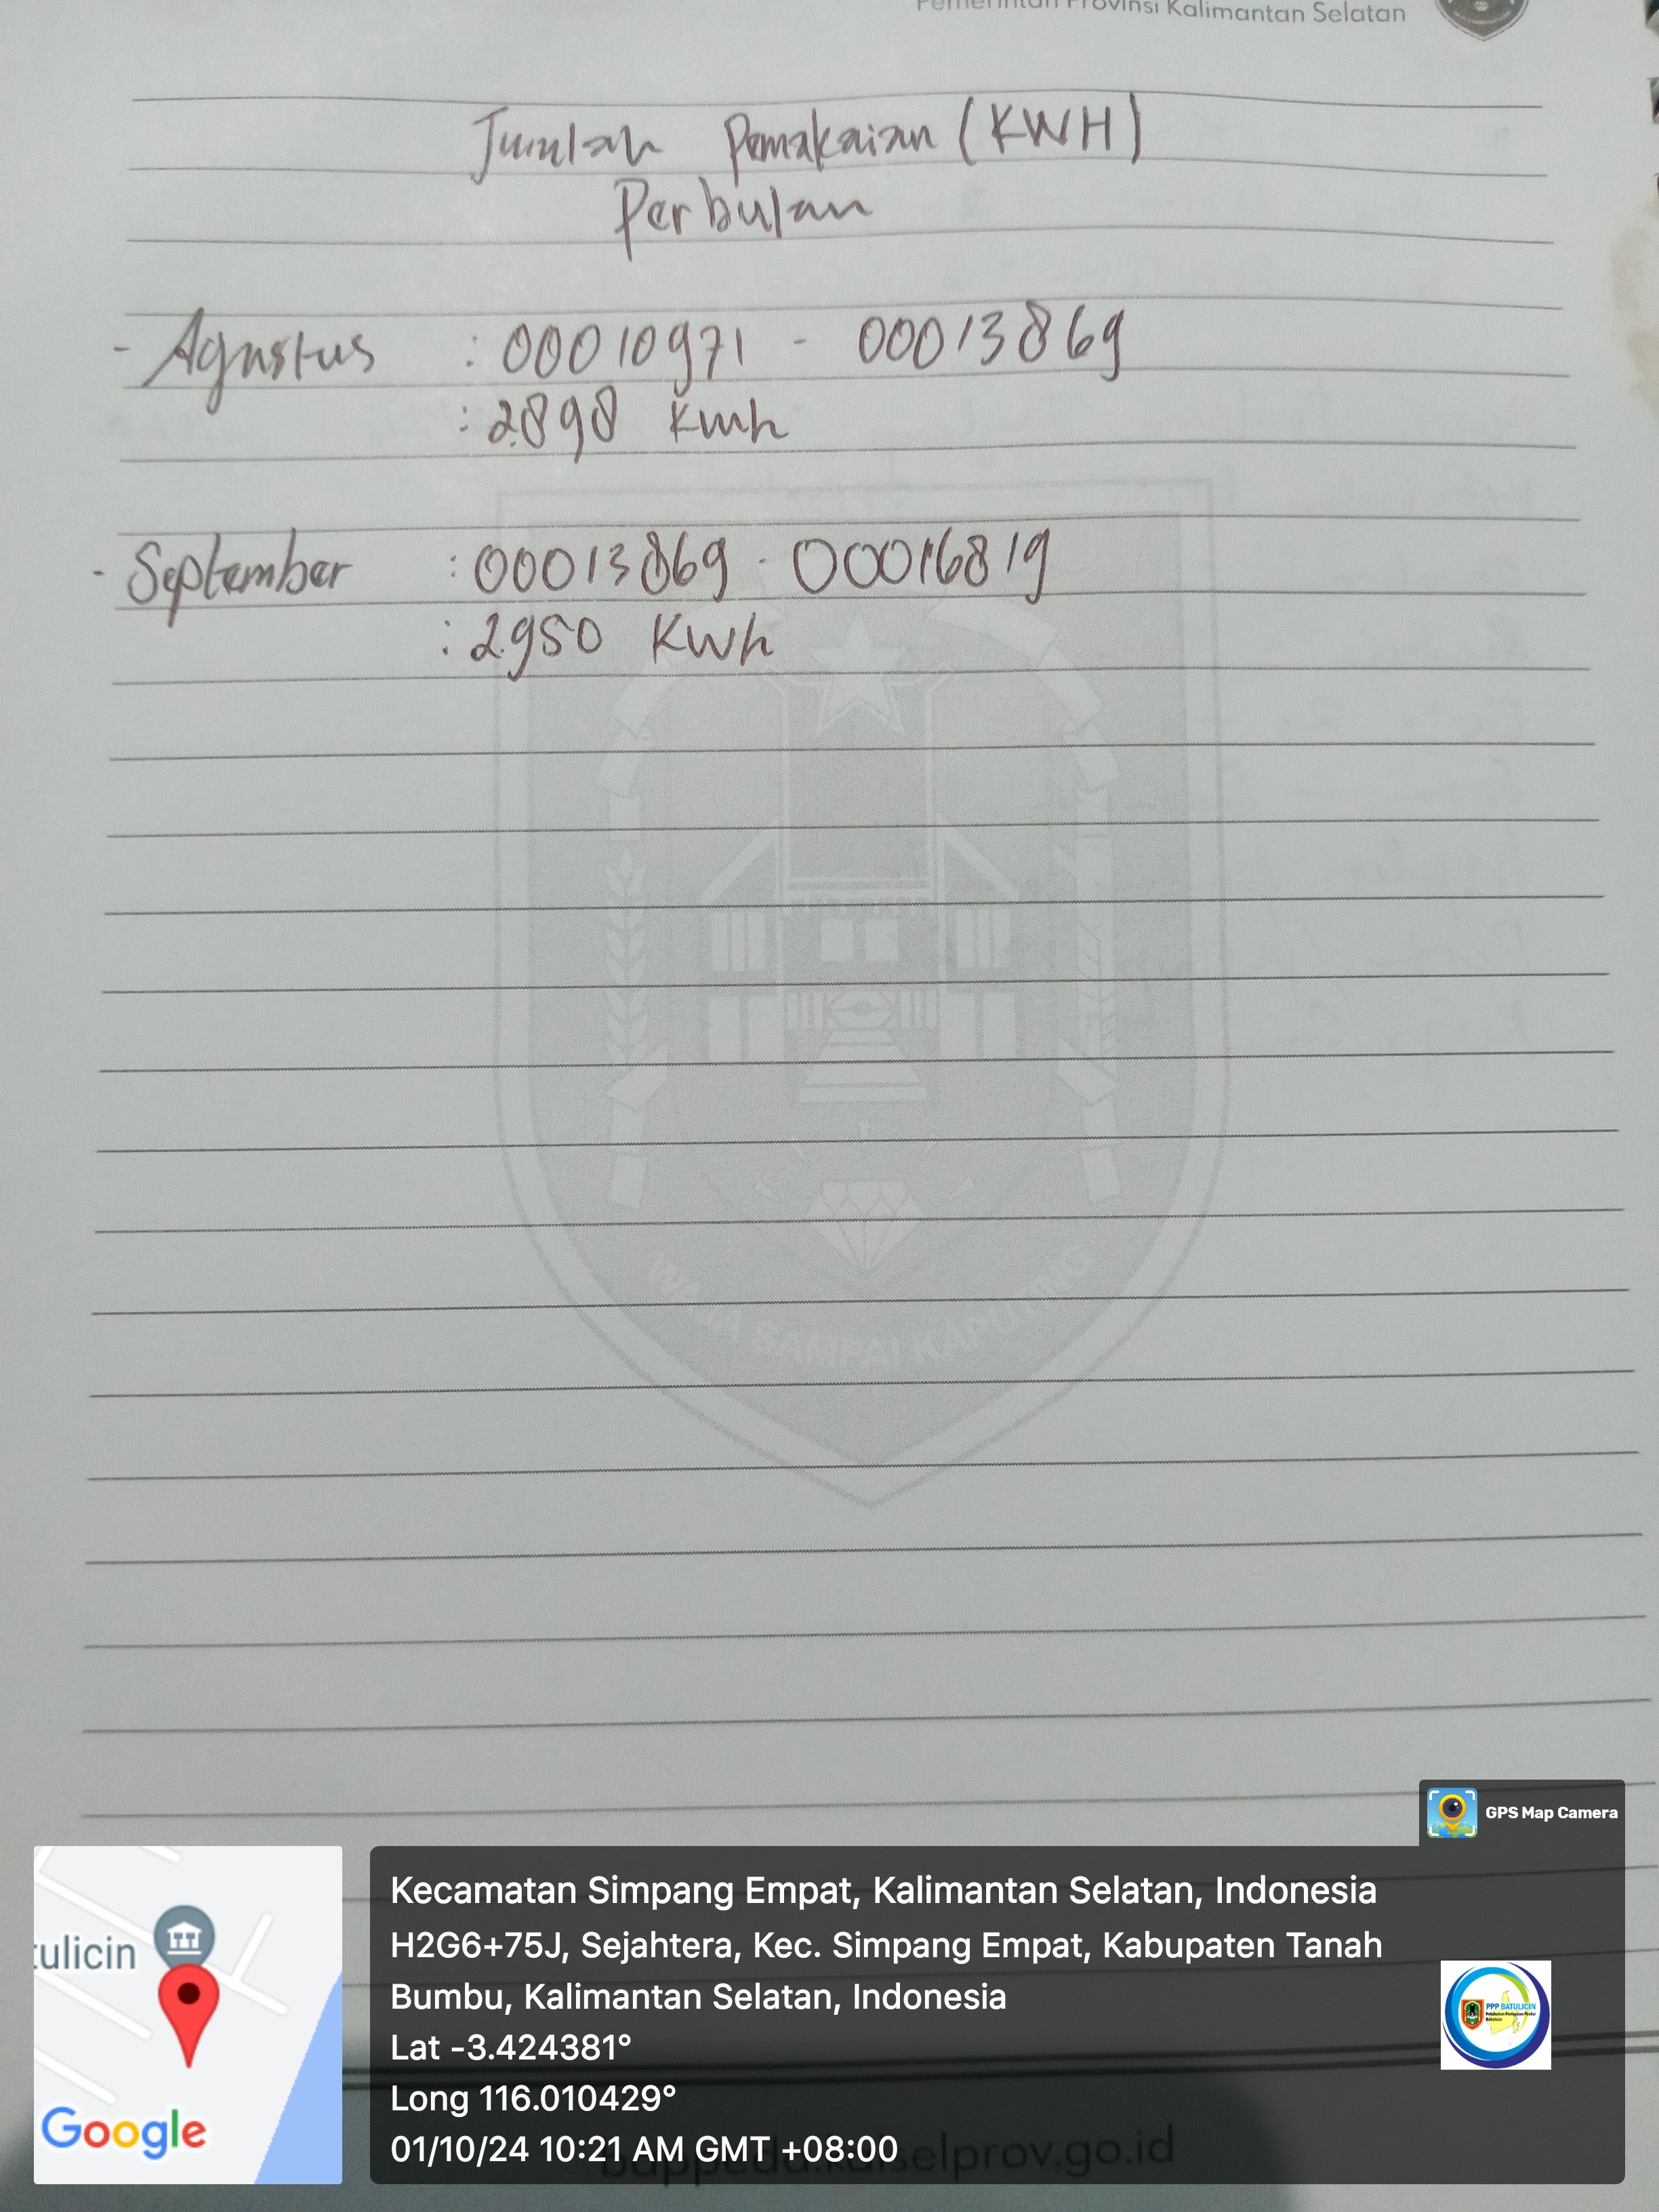 Pemerintah Provinsi Kalimantan Selatan
Jumlah Pemakaian (KWH)
Perbulan
- Agustus : 00010971 - 00013869
: 2.898 Kwh
- September : 00013869 - 00016819
: 2.950 Kwh
WAJA SAMPAI KAPUTING
GPS Map Camera
tulicin
Google
Kecamatan Simpang Empat, Kalimantan Selatan, Indonesia
H2G6+75J, Sejahtera, Kec. Simpang Empat, Kabupaten Tanah
Bumbu, Kalimantan Selatan, Indonesia
Lat -3.424381°
Long 116.010429°
01/10/24 10:21 AM GMT +08:00
PPP BATULICIN
bappeda.kalselprov.go.id